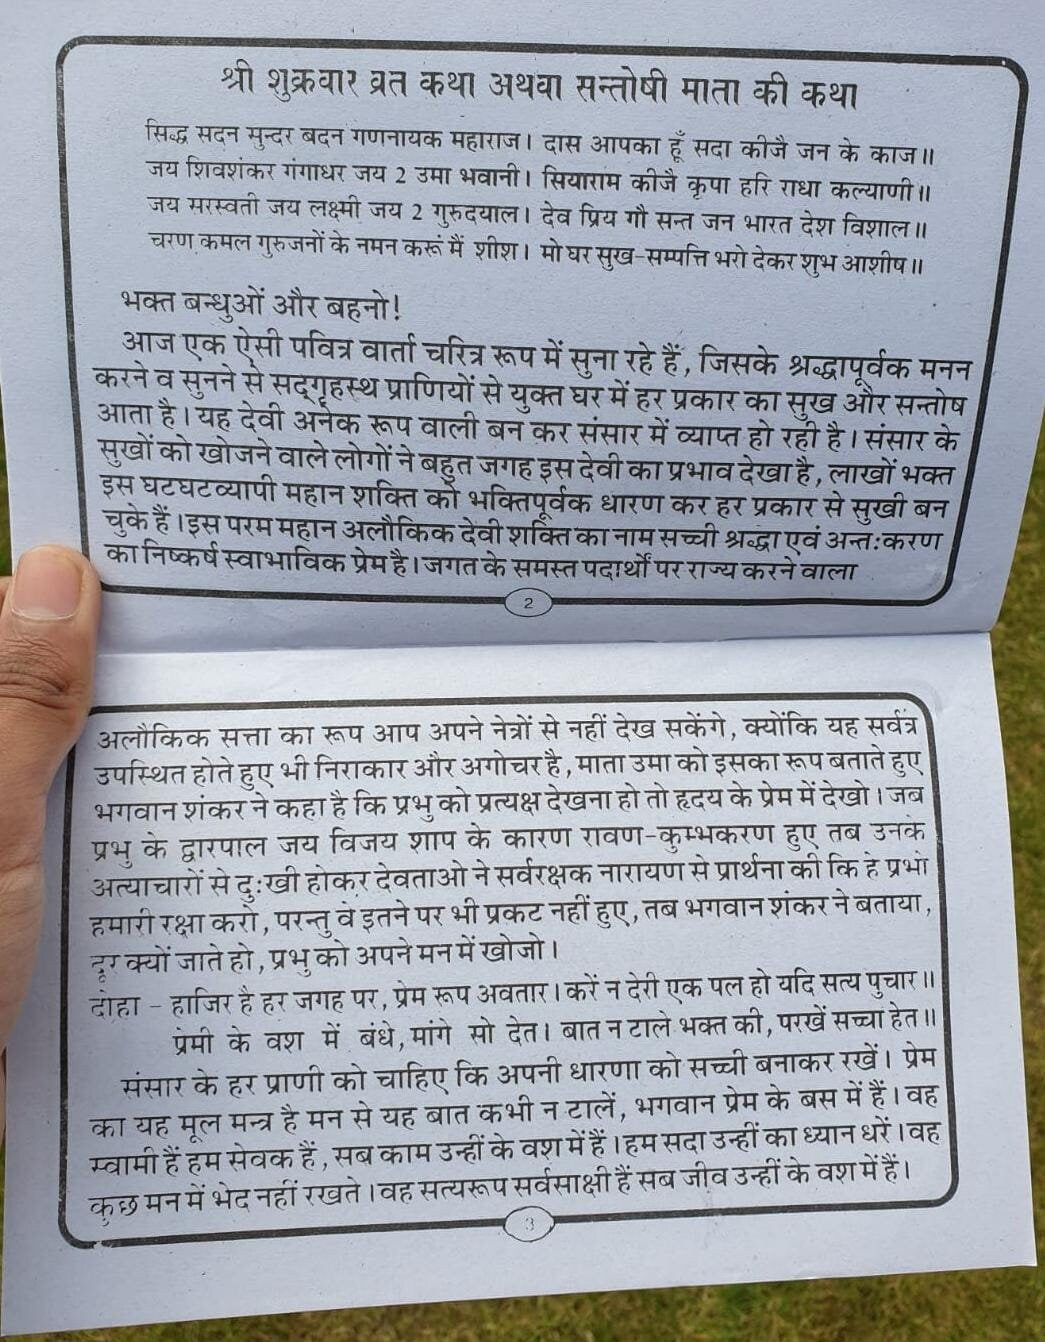 श्री शुक्रवार व्रत कथा अथवा सन्तोषी माता की कथा
सिद्ध सदन सुन्दर बदन गणनायक महाराज। दास आपका हूँ सदा कीजै जन के काज॥
जय शिवशंकर गंगाधर जय 2 उमा भवानी। सियाराम कीजै कृपा हरि राधा कल्याणी॥
जय सरस्वती जय लक्ष्मी जय 2 गुरुदयाल। देव प्रिय गौ सन्त जन भारत देश विशाल॥
चरण कमल गुरुजनों के नमन करूं मैं शीश। मो घर सुख-सम्पत्ति भरो देकर शुभ आशीष॥
भक्त बन्धुओं और बहनो!
आज एक ऐसी पवित्र वार्ता चरित्र रूप में सुना रहे हैं, जिसके श्रद्धापूर्वक मनन
करने व सुनने से सद्गृहस्थ प्राणियों से युक्त घर में हर प्रकार का सुख और सन्तोष
आता है। यह देवी अनेक रूप वाली बन कर संसार में व्याप्त हो रही है। संसार के
सुखों को खोजने वाले लोगों ने बहुत जगह इस देवी का प्रभाव देखा है, लाखों भक्त
इस घटघटव्यापी महान शक्ति को भक्तिपूर्वक धारण कर हर प्रकार से सुखी बन
चुके हैं। इस परम महान अलौकिक देवी शक्ति का नाम सच्ची श्रद्धा एवं अन्त:करण
का निष्कर्ष स्वाभाविक प्रेम है। जगत के समस्त पदार्थों पर राज्य करने वाला
2
अलौकिक सत्ता का रूप आप अपने नेत्रों से नहीं देख सकेंगे, क्योंकि यह सर्वत्र
उपस्थित होते हुए भी निराकार और अगोचर है, माता उमा को इसका रूप बताते हुए
भगवान शंकर ने कहा है कि प्रभु को प्रत्यक्ष देखना हो तो हृदय के प्रेम में देखो। जब
प्रभु के द्वारपाल जय विजय शाप के कारण रावण-कुम्भकरण हुए तब उनके
अत्याचारों से दु:खी होकर देवताओ ने सर्वरक्षक नारायण से प्रार्थना की कि हे प्रभो
हमारी रक्षा करो, परन्तु वे इतने पर भी प्रकट नहीं हुए, तब भगवान शंकर ने बताया,
दूर क्यों जाते हो, प्रभु को अपने मन में खोजो।
दोहा - हाजिर है हर जगह पर, प्रेम रूप अवतार। करें न देरी एक पल हो यदि सत्य पुचार॥
प्रेमी के वश में बंधे, मांगे सो देत। बात न टाले भक्त की, परखें सच्चा हेत॥
संसार के हर प्राणी को चाहिए कि अपनी धारणा को सच्ची बनाकर रखें। प्रेम
का यह मूल मन्त्र है मन से यह बात कभी न टालें, भगवान प्रेम के बस में हैं। वह
स्वामी हैं हम सेवक हैं, सब काम उन्हीं के वश में हैं। हम सदा उन्हीं का ध्यान धरें। वह
कुछ मन में भेद नहीं रखते। वह सत्यरूप सर्वसाक्षी हैं सब जीव उन्हीं के वश में हैं।
3